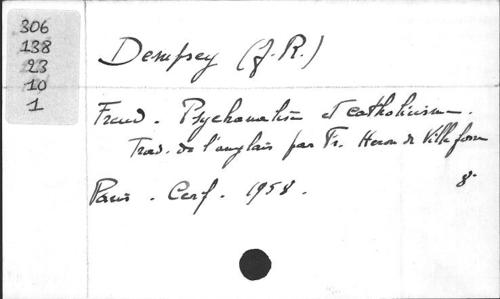 306
138
23
10
1
Dempsey (J. R.)
Freud. Psychanalise et catholicisme.
Trad. de l'anglais par Fr. Heron de Villefosse
Paris. Cerf. 1958.
8°